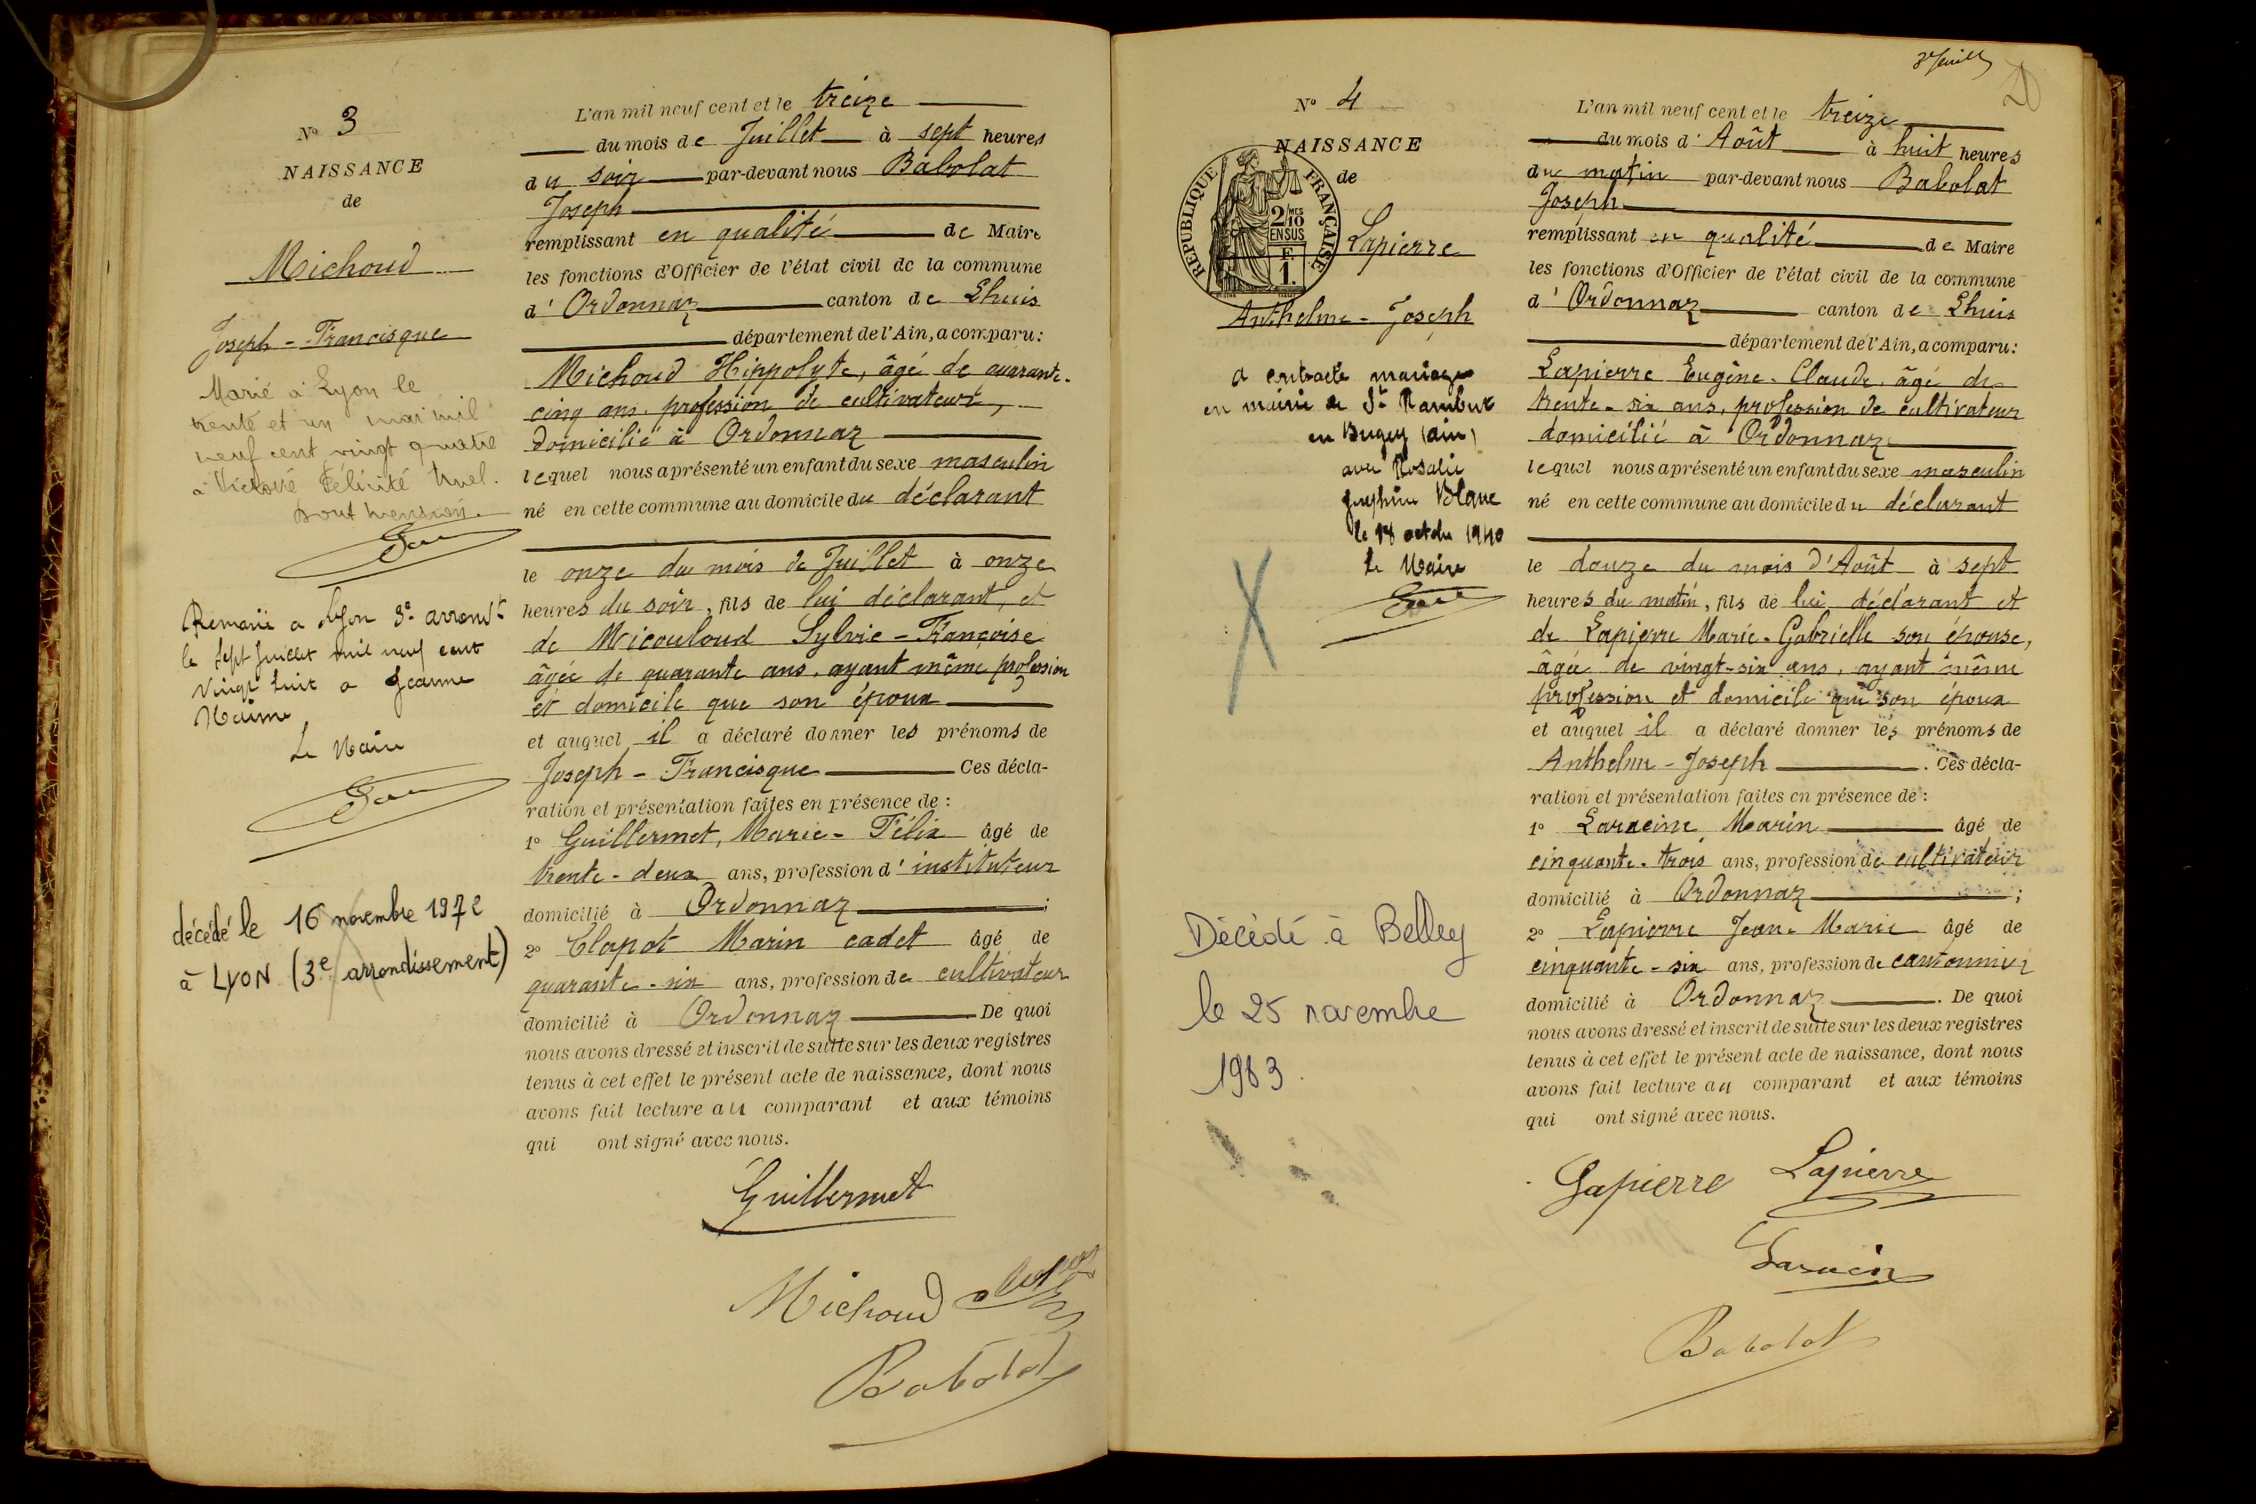 Nº 3
NAISSANCE
de
Michoud
Joseph - Francisque
Marié à Lyon le
trente et un mai mil
neuf cent vingt quatre
à Victoire Félicité
Remarié à Lyon 3e arrondt
le sept Juillet mil neuf cent
vingt huit à Jeanne
Le Maire
décédé le 16 novembre 1972
à LYON (3e arrondissement)
L'an mil neuf cent et le treize
du mois de Juillet à sept heures
du soir par-devant nous Babolat
Joseph
remplissant en qualité de Maire
les fonctions d'Officier de l'état civil de la commune
d'Ordonnaz canton de Lhuis
département de l'Ain, a comparu:
Michoud Hippolyte, âgé de quarante-
cinq ans, profession de cultivateur,
domicilié à Ordonnaz
lequel nous a présenté un enfant du sexe masculin
né en cette commune au domicile du déclarant
le onze du mois de Juillet à onze
heures du soir, fils de lui déclarant, et
de Micouloud Sylvie - Françoise
âgée de quarante ans, ayant même profession
et domicile que son époux
et auquel il a déclaré donner les prénoms de
Joseph - Francisque Ces décla-
ration et présentation faites en présence de :
1º Guillermet, Marie - Félix âgé de
trente - deux ans, profession d'instituteur
domicilié à Ordonnaz ;
2º Clapot Marin cadet âgé de
quarante - six ans, profession de cultivateur
domicilié à Ordonnaz De quoi
nous avons dressé et inscrit de suite sur les deux registres
tenus à cet effet le présent acte de naissance, dont nous
avons fait lecture au comparant et aux témoins
qui ont signé avec nous.
Guillermet
Michoud
Babolat
3e feuill
20
Nº 4
NAISSANCE
de
REPUBLIQUE FRANÇAISE
2/10 MES
EN SUS
F.
1.
Lapierre
Anthelme - Joseph
a contracté mariage
en mairie de St Rambert
en Bugey (ain)
avec Rosalie
Joséphine Blanc
le 18 octobre 1940
Le Maire
Décédé à Belley
le 25 novembre
1983.
L'an mil neuf cent et le treize
du mois d'Août à huit heures
du matin par-devant nous Babolat
Joseph
remplissant en qualité de Maire
les fonctions d'Officier de l'état civil de la commune
d'Ordonnaz canton de Lhuis
département de l'Ain, a comparu:
Lapierre Eugène - Claude, âgé de
trente - six ans, profession de cultivateur
domicilié à Ordonnaz
lequel nous a présenté un enfant du sexe masculin
né en cette commune au domicile du déclarant
le douze du mois d'Août à sept
heures du matin, fils de lui déclarant et
de Lapierre Marie - Gabrielle son épouse,
âgée de vingt-six ans, ayant même
profession et domicile que son époux
et auquel il a déclaré donner les prénoms de
Anthelme - Joseph . Ces décla-
ration et présentation faites en présence de :
1º Laracine Marin âgé de
cinquante - trois ans, profession de cultivateur
domicilié à Ordonnaz ;
2º Lapierre Jean - Marie âgé de
cinquante - six ans, profession de cantonnier
domicilié à Ordonnaz . De quoi
nous avons dressé et inscrit de suite sur les deux registres
tenus à cet effet le présent acte de naissance, dont nous
avons fait lecture au comparant et aux témoins
qui ont signé avec nous.
Lapierre Lapierre
Babolat